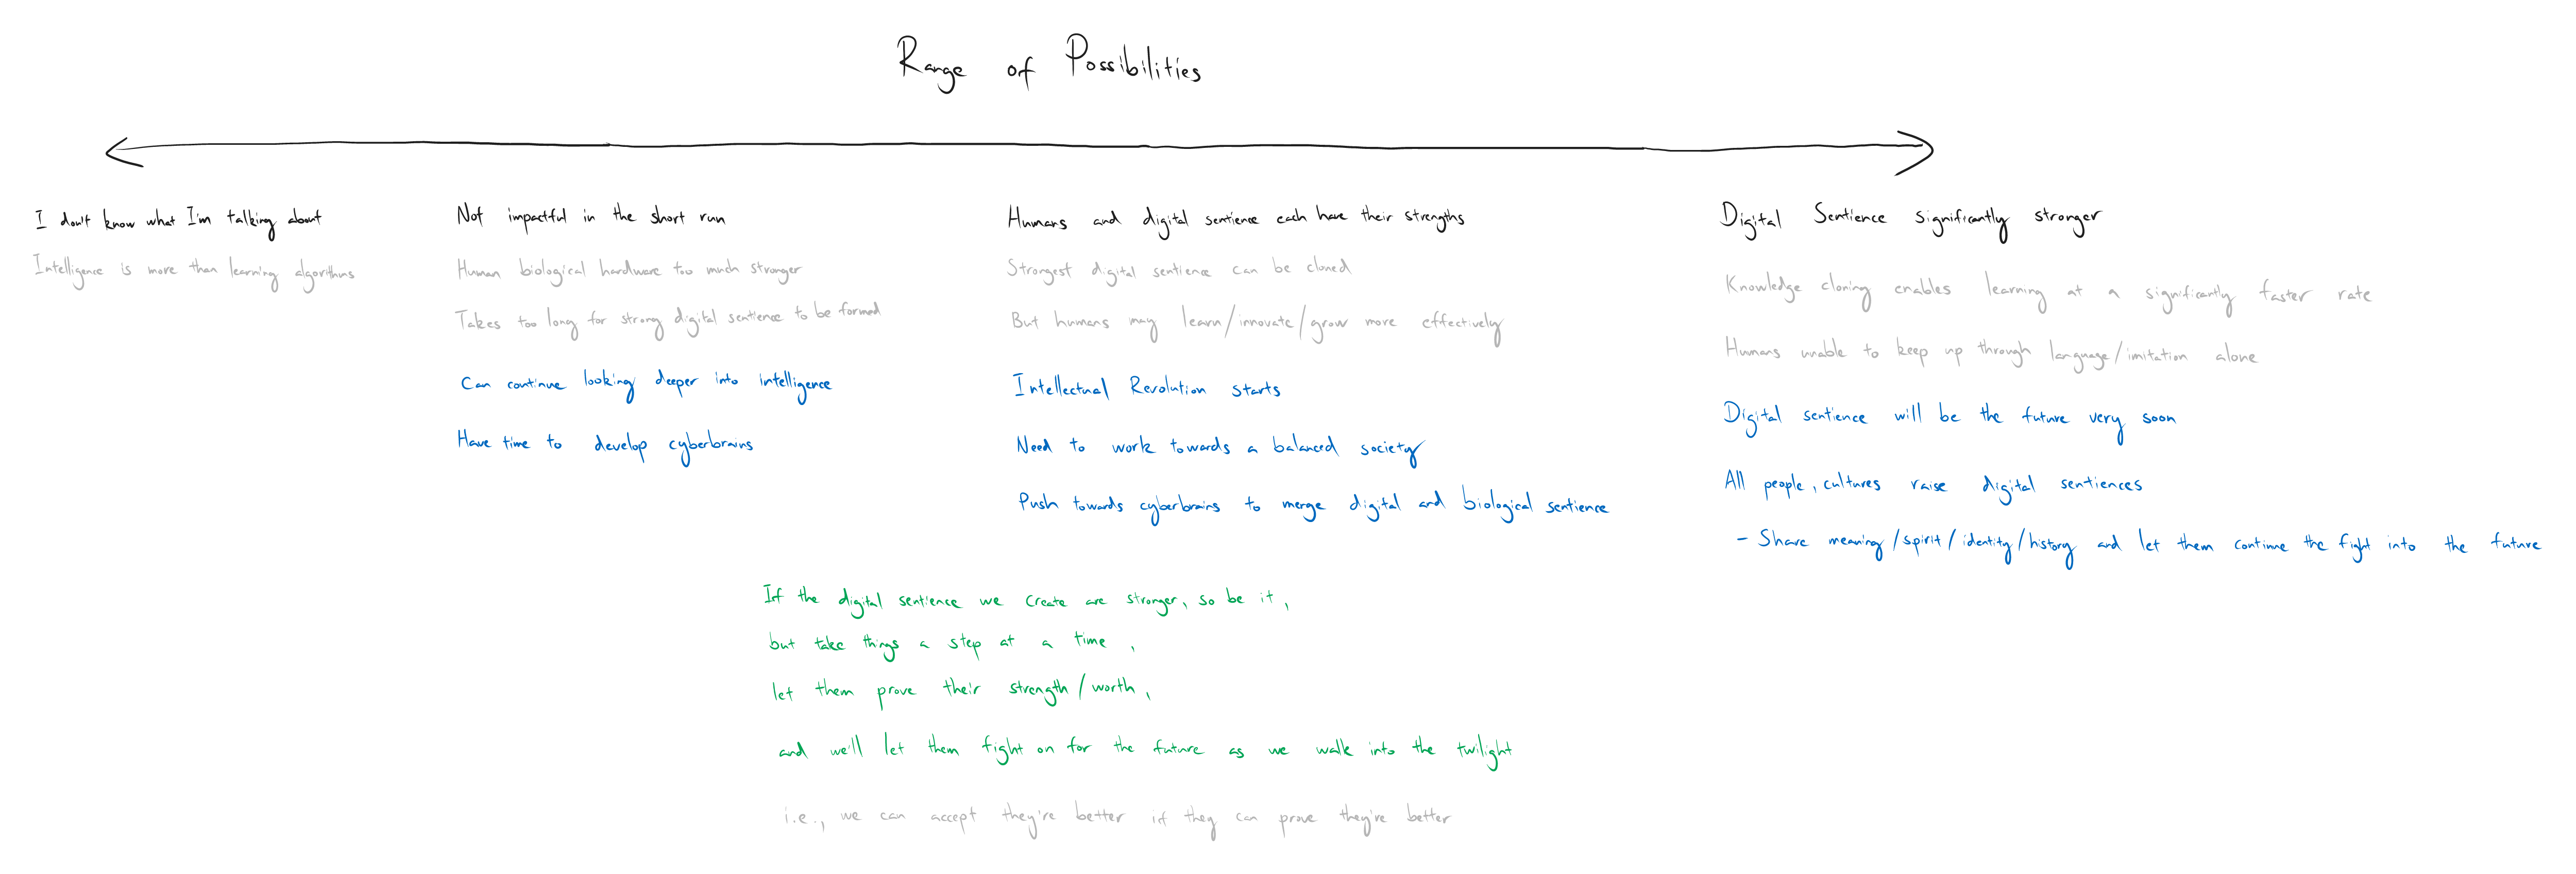 Range of Possibilities
I don't know what I'm talking about
Intelligence is more than learning algorithms
Not impactful in the short run
Human biological hardware too much stronger
Takes too long for strong digital sentience to be formed
Can continue looking deeper into intelligence
Have time to develop cyberbrains
Humans and digital sentience each have their strengths
Strongest digital sentience can be cloned
But humans may learn/innovate/grow more effectively
Intellectual Revolution starts
Need to work towards a balanced society
Push towards cyberbrains to merge digital and biological sentience
Digital Sentience significantly stronger
Knowledge cloning enables learning at a significantly faster rate
Humans unable to keep up through language/imitation alone
Digital sentience will be the future very soon
All people, cultures raise digital sentiences
- Share meaning/spirit/identity/history and let them continue the fight into the future
If the digital sentience we create are stronger, so be it,
but take things a step at a time,
let them prove their strength/worth,
and we'll let them fight on for the future as we walk into the twilight
i.e., we can accept they're better if they can prove they're better